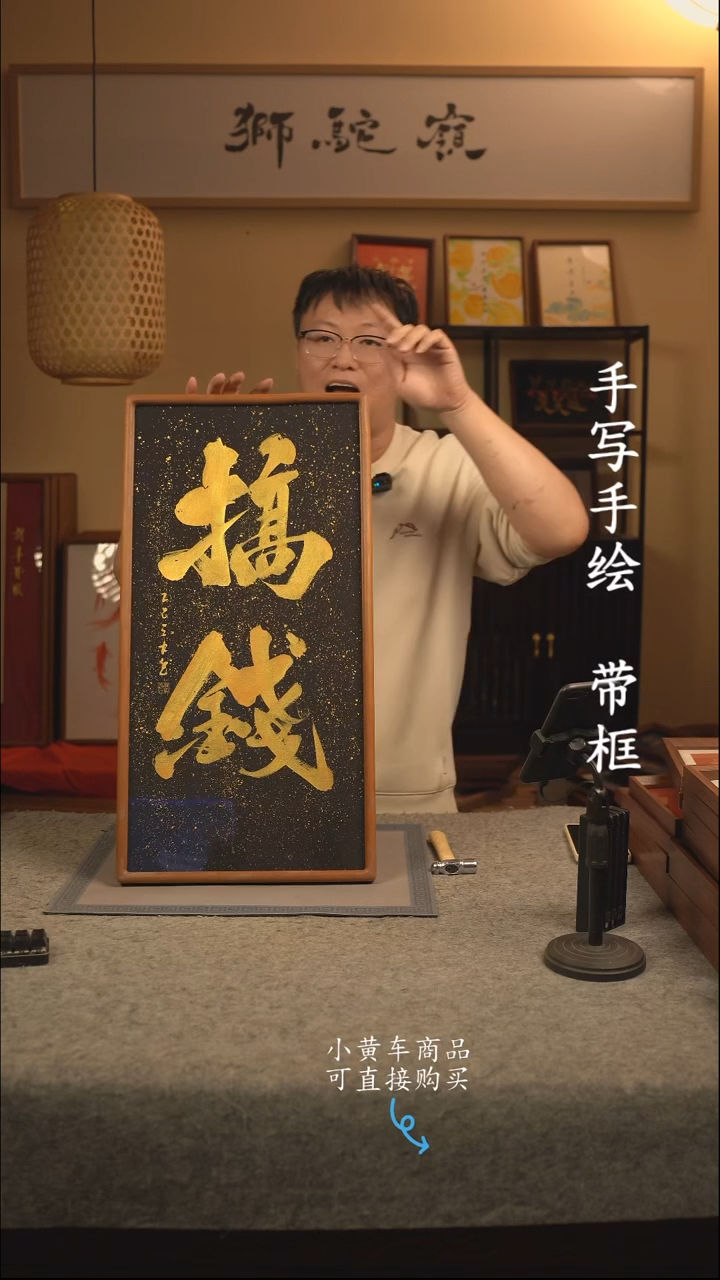 獅駝嶺
搞錢
手写手绘 带框
小黄车商品
可直接购买